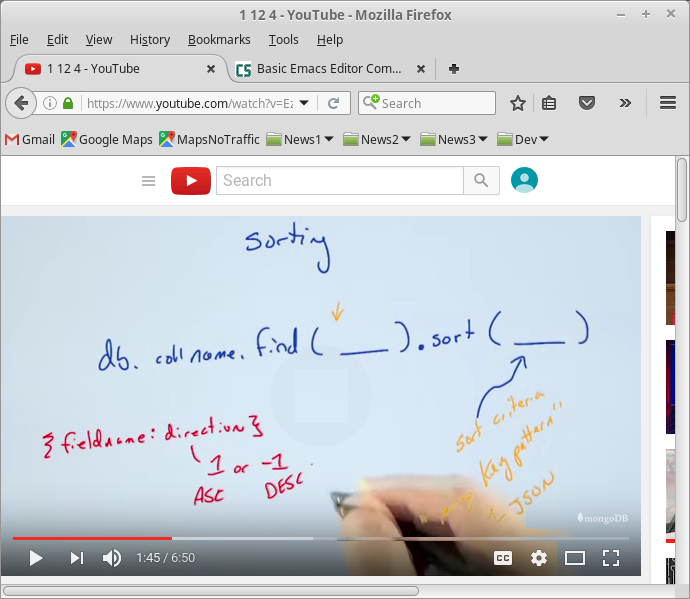 1 12 4 - YouTube - Mozilla Firefox
File Edit View History Bookmarks Tools Help
1 12 4 - YouTube
Basic Emacs Editor Com...
https://www.youtube.com/watch?v=Ez
Search
Gmail Google Maps MapsNoTraffic News1 News2 News3 Dev
Search
sorting
db. collname. find ( ___ ). sort ( ___ )
{ fieldname: direction }
1 or -1
ASC DESC
sort criteria
key pattern"
JSON
mongoDB
1:45 / 6:50
CC